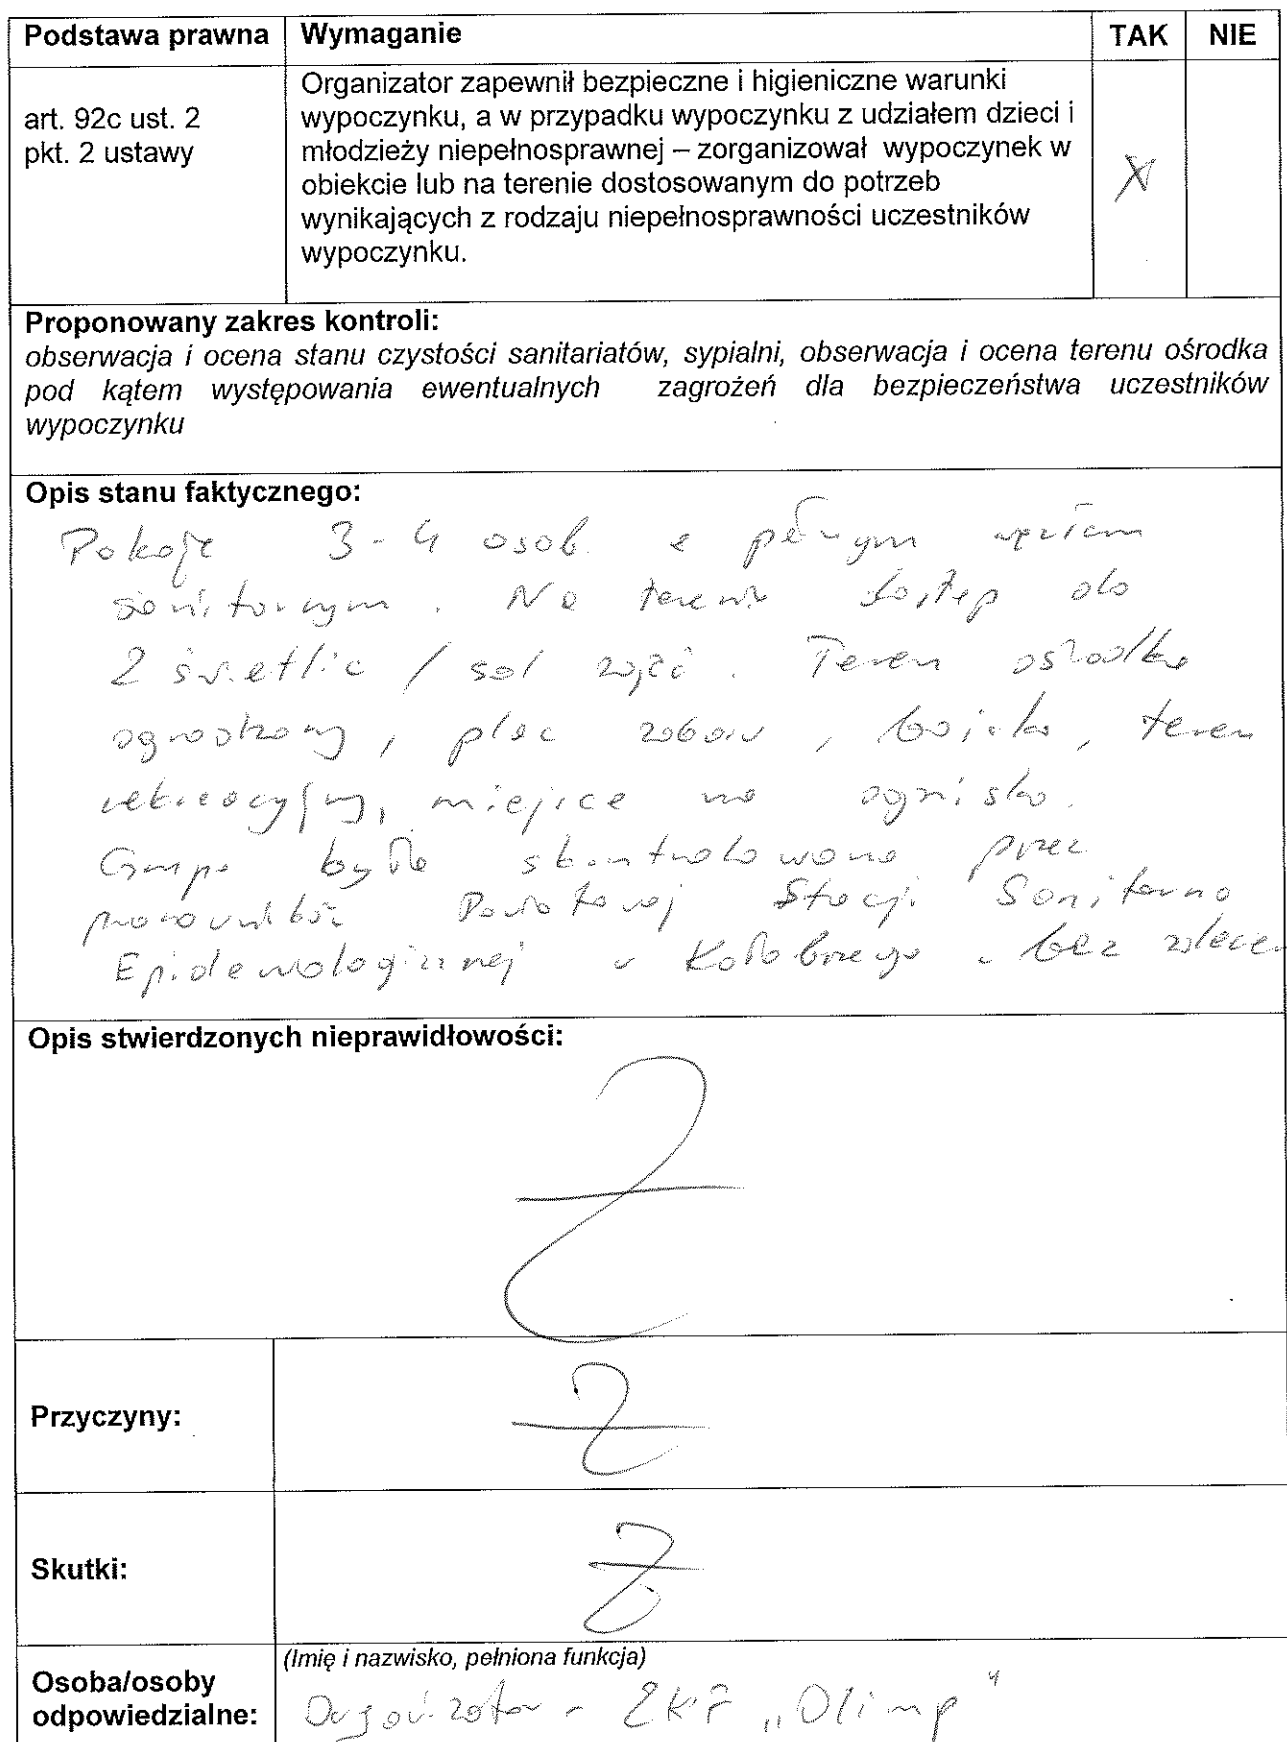 Podstawa prawna Wymaganie TAK NIE
art. 92c ust. 2
pkt. 2 ustawy
Organizator zapewnił bezpieczne i higieniczne warunki
wypoczynku, a w przypadku wypoczynku z udziałem dzieci i
młodzieży niepełnosprawnej – zorganizował wypoczynek w
obiekcie lub na terenie dostosowanym do potrzeb
wynikających z rodzaju niepełnosprawności uczestników
wypoczynku.
X
Proponowany zakres kontroli:
obserwacja i ocena stanu czystości sanitariatów, sypialni, obserwacja i ocena terenu ośrodka
pod kątem występowania ewentualnych zagrożeń dla bezpieczeństwa uczestników
wypoczynku
Opis stanu faktycznego:
Pokoje 3-4 osob. z pełnym węzłem
sanitarnym. Na terenie dostęp do
2 świetlic / sal zajęć. Teren ośrodka
ogrodzony, plac zabaw, boisko, teren
rekreacyjny, miejsce na ognisko.
Grupa była skontrolowana przez
pracowników Powiatowej Stacji Sanitarno
Epidemiologicznej w Kołobrzegu - bez zaleceń
Opis stwierdzonych nieprawidłowości:
Przyczyny:
Skutki:
(Imię i nazwisko, pełniona funkcja)
Osoba/osoby
odpowiedzialne:
Organizator - ZKF „Olimp"